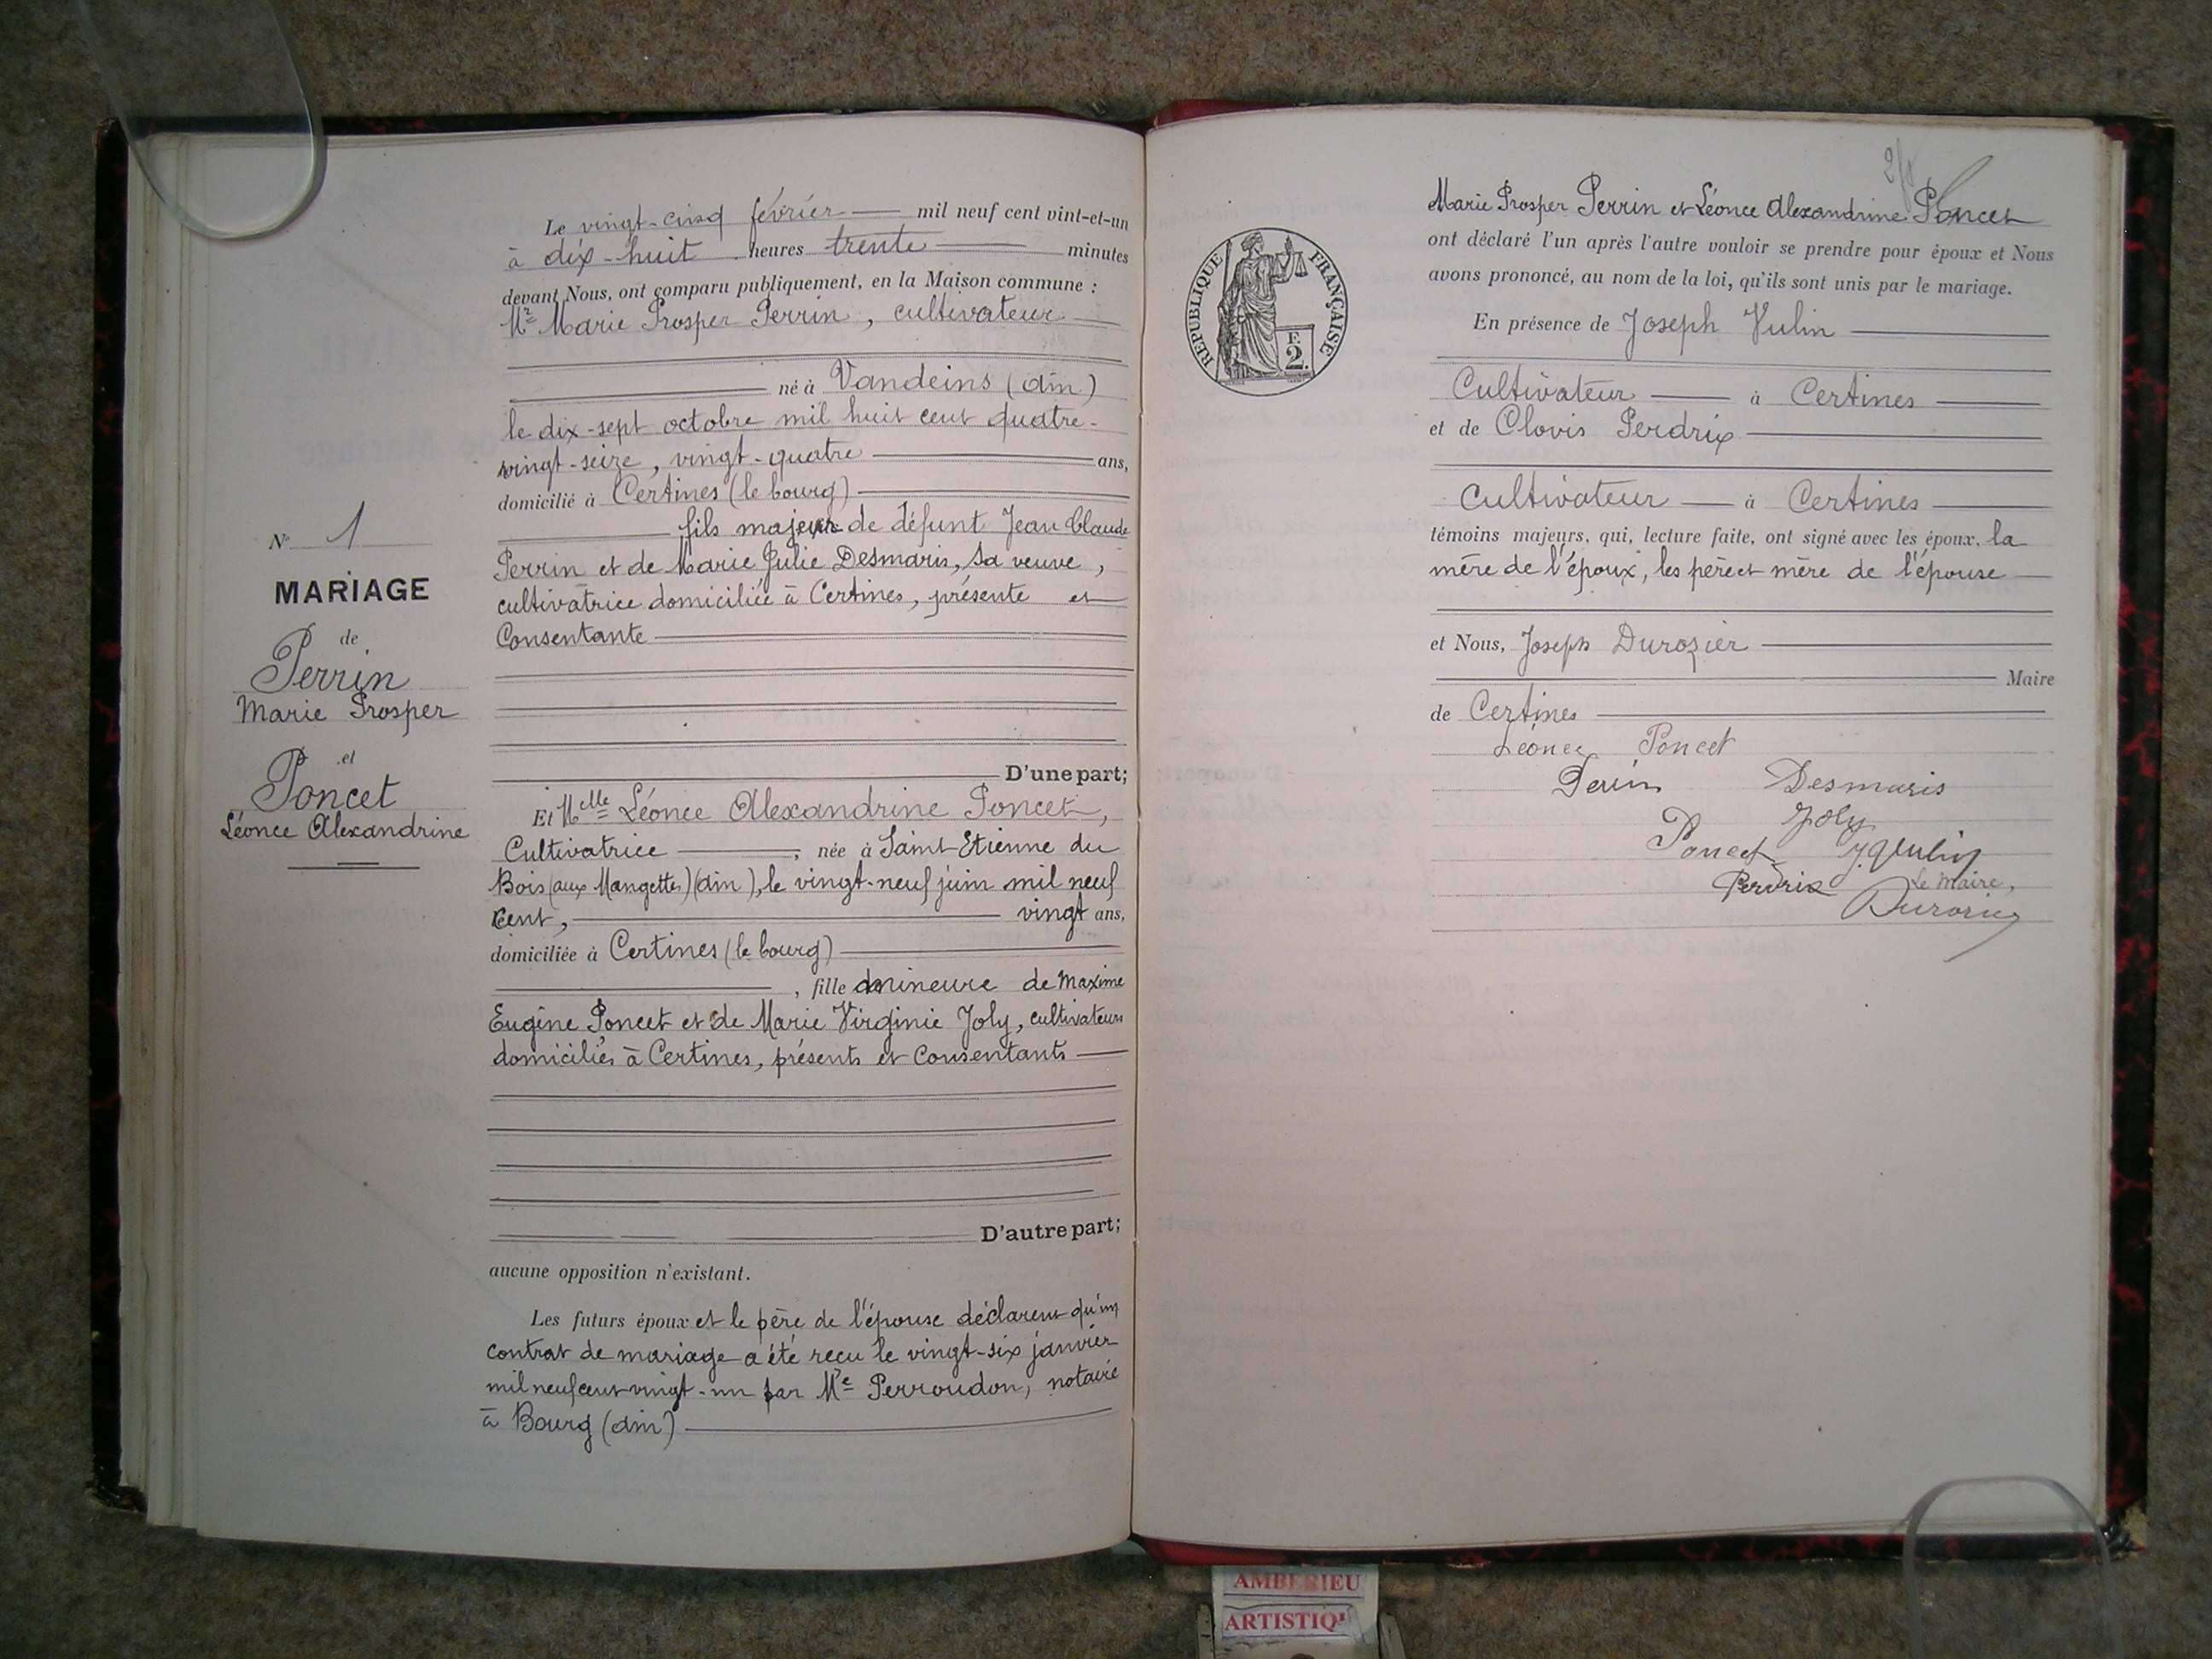 Le vingt-cinq février mil neuf cent vint-et-un
à dix-huit heures trente minutes
devant Nous, ont comparu publiquement, en la Maison commune :
Mr Marie Prosper Perrin, cultivateur
né à Vandeins (Ain)
le dix-sept octobre mil huit cent quatre-
vingt-seize, vingt-quatre ans,
domicilié à Certines (le bourg)
fils majeur de défunt Jean Claude
Perrin et de Marie Julie Desmaris, sa veuve,
cultivatrice domiciliée à Certines, présente et
Consentante
D'une part;
N° 1
MARIAGE
de
Perrin
Marie Prosper
et
Poncet
Léonce Alexandrine
Et Melle Léonce Alexandrine Poncet,
Cultivatrice, née à Saint-Etienne du
Bois (aux Mangettes) (Ain), le vingt-neuf juin mil neuf
cent, vingt ans,
domiciliée à Certines (le bourg)
, fille mineure de Maxime
Eugène Poncet et de Marie Virginie Joly, cultivateurs
domiciliés à Certines, présents et consentants
D'autre part;
aucune opposition n'existant.
Les futurs époux et le père de l'épouse déclarent qu'un
contrat de mariage a été reçu le vingt-six janvier
mil neuf cent vingt-un par Me Perroudon, notaire
à Bourg (Ain)
Marie Prosper Perrin et Léonce Alexandrine Poncet
ont déclaré l'un après l'autre vouloir se prendre pour époux et Nous
avons prononcé, au nom de la loi, qu'ils sont unis par le mariage.
REPUBLIQUE FRANÇAISE
F.
2.
En présence de Joseph Vulin
Cultivateur à Certines
et de Clovis Perdrix
Cultivateur à Certines
témoins majeurs, qui, lecture faite, ont signé avec les époux, la
mère de l'époux, les père et mère de l'épouse
et Nous, Joseph Durozier
Maire
de Certines
Léonce Poncet
Perrin Desmaris
Joly
Poncet J. Vulin
Perdrix Le Maire,
Durozier
AMBERIEU
ARTISTIQ